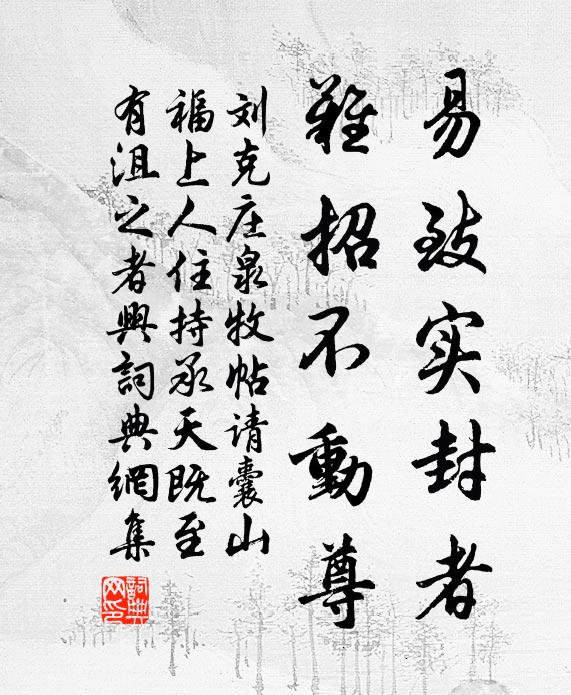 易致实封者
难招不動尊
刘克庄泉牧帖请囊山
福上人住持承天既至
有沮之者興詞典網集
詞典